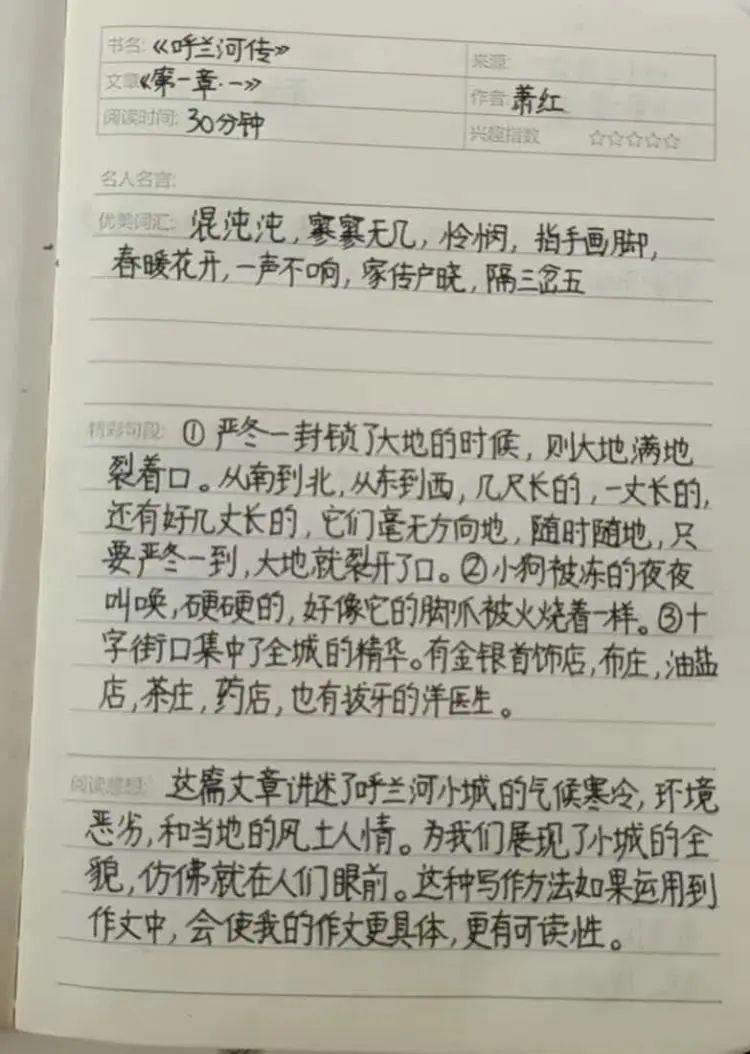 书名:《呼兰河传》
来源:
文章《第一章·一》
作者 萧红
阅读时间: 30分钟
兴趣指数 ☆☆☆☆☆
名人名言:
优美词汇: 混沌沌,寥寥无几,怜悯,指手画脚,
春暖花开,一声不响,家传户晓,隔三岔五
精彩句段: ①严冬一封锁了大地的时候,则大地满地
裂着口。从南到北,从东到西,几尺长的,一丈长的,
还有好几丈长的,它们毫无方向地,随时随地,只
要严冬一到,大地就裂开了口。②小狗被冻的夜夜
叫唤,硬硬的,好像它的脚爪被火烧着一样。③十
字街口集中了全城的精华。有金银首饰店,布庄,油盐
店,茶庄,药店,也有拔牙的洋医生。
阅读感想: 这篇文章讲述了呼兰河小城的气候寒冷,环境
恶劣,和当地的风土人情。为我们展现了小城的全
貌,仿佛就在人们眼前。这种写作方法如果运用到
作文中,会使我的作文更具体,更有可读性。